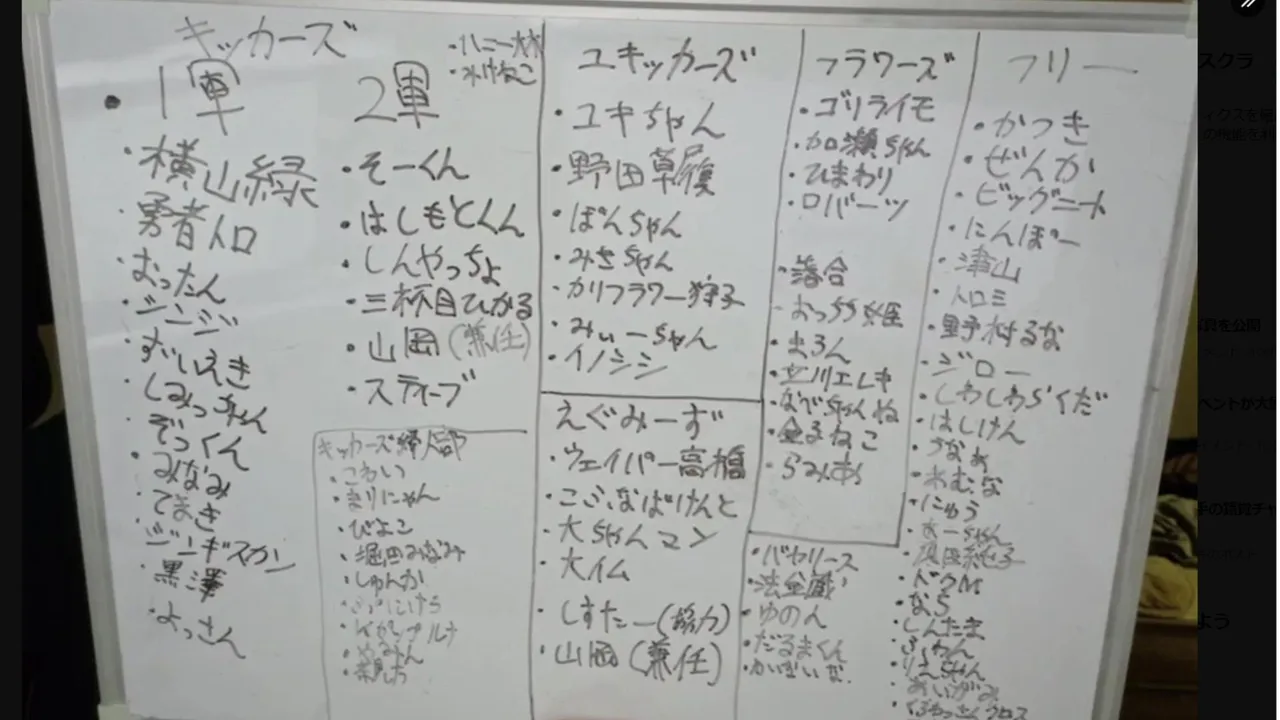 キッカーズ
1軍
・横山緑
・勇者トロ
・おったん
・ジンジ
・ずいえき
・しみっちゃん
・ぞっくん
・みなみ
・てまき
・ジンギスカン
・黒澤
・よっさん
2軍
・ハニー大木
・みけねこ
・そーくん
・はしもとくん
・しんやっちょ
・三杯目ひかる
・山岡(兼任)
・スティーブ
キッカーズ婦人部
・こわい
・まりにゃん
・ぴよこ
・堀田みなみ
・しゅんか
ユキッカーズ
・ユキちゃん
・野田草履
・ぽんちゃん
・みさちゃん
・カリフラワー狩子
・みぃーちゃん
・イノシシ
えぐみーず
・ウェイパー高橋
・こぶなばけんと
・大ちゃんマン
・大イム
・しすたー(協力)
・山岡(兼任)
フラワーズ
・ゴリライモ
・加瀬ちゃん
・ひまわり
・ロバーツ
・落合
・おっちち姫
・まろん
・立川エレキ
・なべちゃんね
・金子ねこ
・らみあ
・バヤリース
・法金蔵
・ゆのん
・だるまくん
フリー
・かつき
・ぜんか
・ビッグニート
・にんぽー
・津山
・トロミ
・野村るな
・ジロー
・しわしわらくだ
・はしけん
・うなぁ
・おむな
・にゅう
・ドクM
・なら
・しんたま
・ふわん
・りえちゃん
・あいがみ
スクラ
写真を公開
ベントが大
手の語質チャ
よう